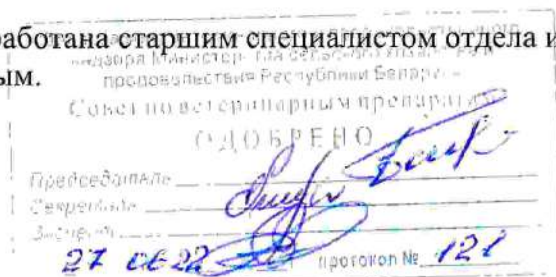 работана старшим специалистом отдела и
ым.
надзора Министерства сельского хозяйства и
продовольствия Республики Беларусь
Совет по ветеринарным препаратам
ОДОБРЕНО
Председатель
Секретарь
Эксперт
27 06 22 протокол № 121